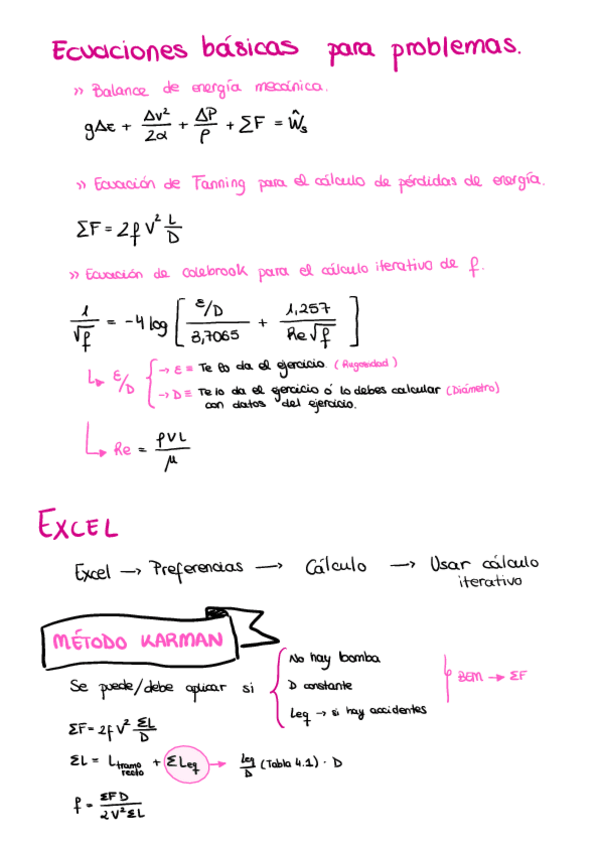 Ecuaciones básicas para problemas.
>> Balance de energía mecánica.
gΔz + Δv²/2α + ΔP/ρ + ΣF = Ŵs
>> Ecuación de Fanning para el cálculo de pérdidas de energía.
ΣF = 2f V² L/D
>> Ecuación de colebrook para el cálculo iterativo de f.
1/√f = -4 log [ (ε/D)/3,7065 + 1,257/(Re√f) ]
↳ ε/D { → ε ≡ Te lo da el ejercicio. (Rugosidad)
→ D ≡ Te lo da el ejercicio ó lo debes calcular (Diámetro)
con datos del ejercicio.
↳ Re = ρVL/μ
EXCEL
Excel → Preferencias → Cálculo → Usar cálculo
iterativo
MÉTODO KARMAN
Se puede/debe aplicar si { No hay bomba
D constante
Leq → si hay accidentes
f BEM → ΣF
ΣF = 2f V² ΣL/D
ΣL = L tramo recto + ΣLeq → Leq/D (Tabla 4.1) · D
f = ΣFD/2V²ΣL